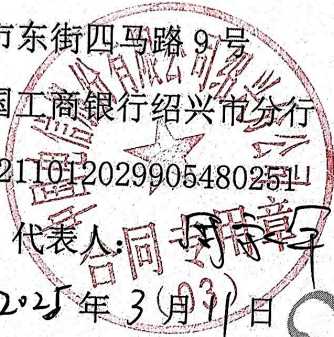 市东街四马路9号
国工商银行绍兴市分行
211012029905480251
代表人：
合同专用章
(03)
2025年3月11日